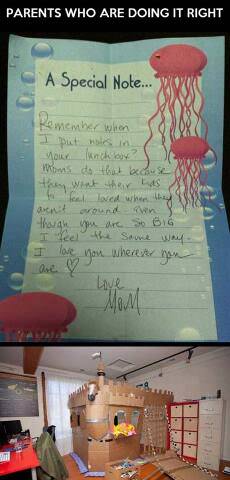 PARENTS WHO ARE DOING IT RIGHT
A Special Note...
Remember when
I put notes in
your lunchbox?
Moms do that because
they want their kids
to feel loved when they
aren't around. Even
though you are so BIG
I feel the same way.
I love you wherever you
are ♡
Love
Mom